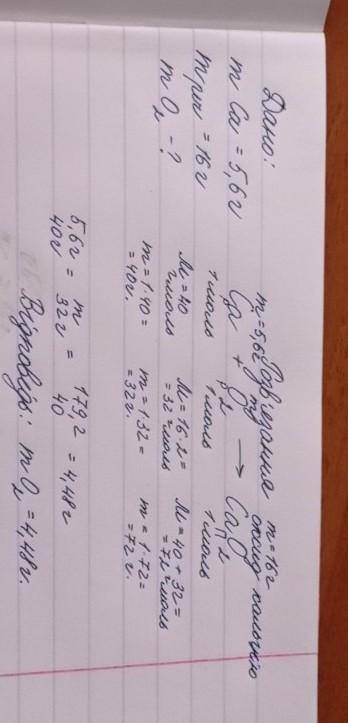 Дано:
m Ca = 5,6г
m рин = 16г
m O2 - ?
Розв'язання
m=5,6г m г m=16г оксид кальцію
Ca + O2 → CaO2
1моль 1 моль 1 моль
M=40 г/моль M=16·2= =32 г/моль M=40+32= =72 г/моль
m=1·40= =40г. m=1·32= =32г. m=1·72= =72г.
5,6г/40г = m/32г = 179,2/40 = 4,48г
Відповідь: m O2 = 4,48г.